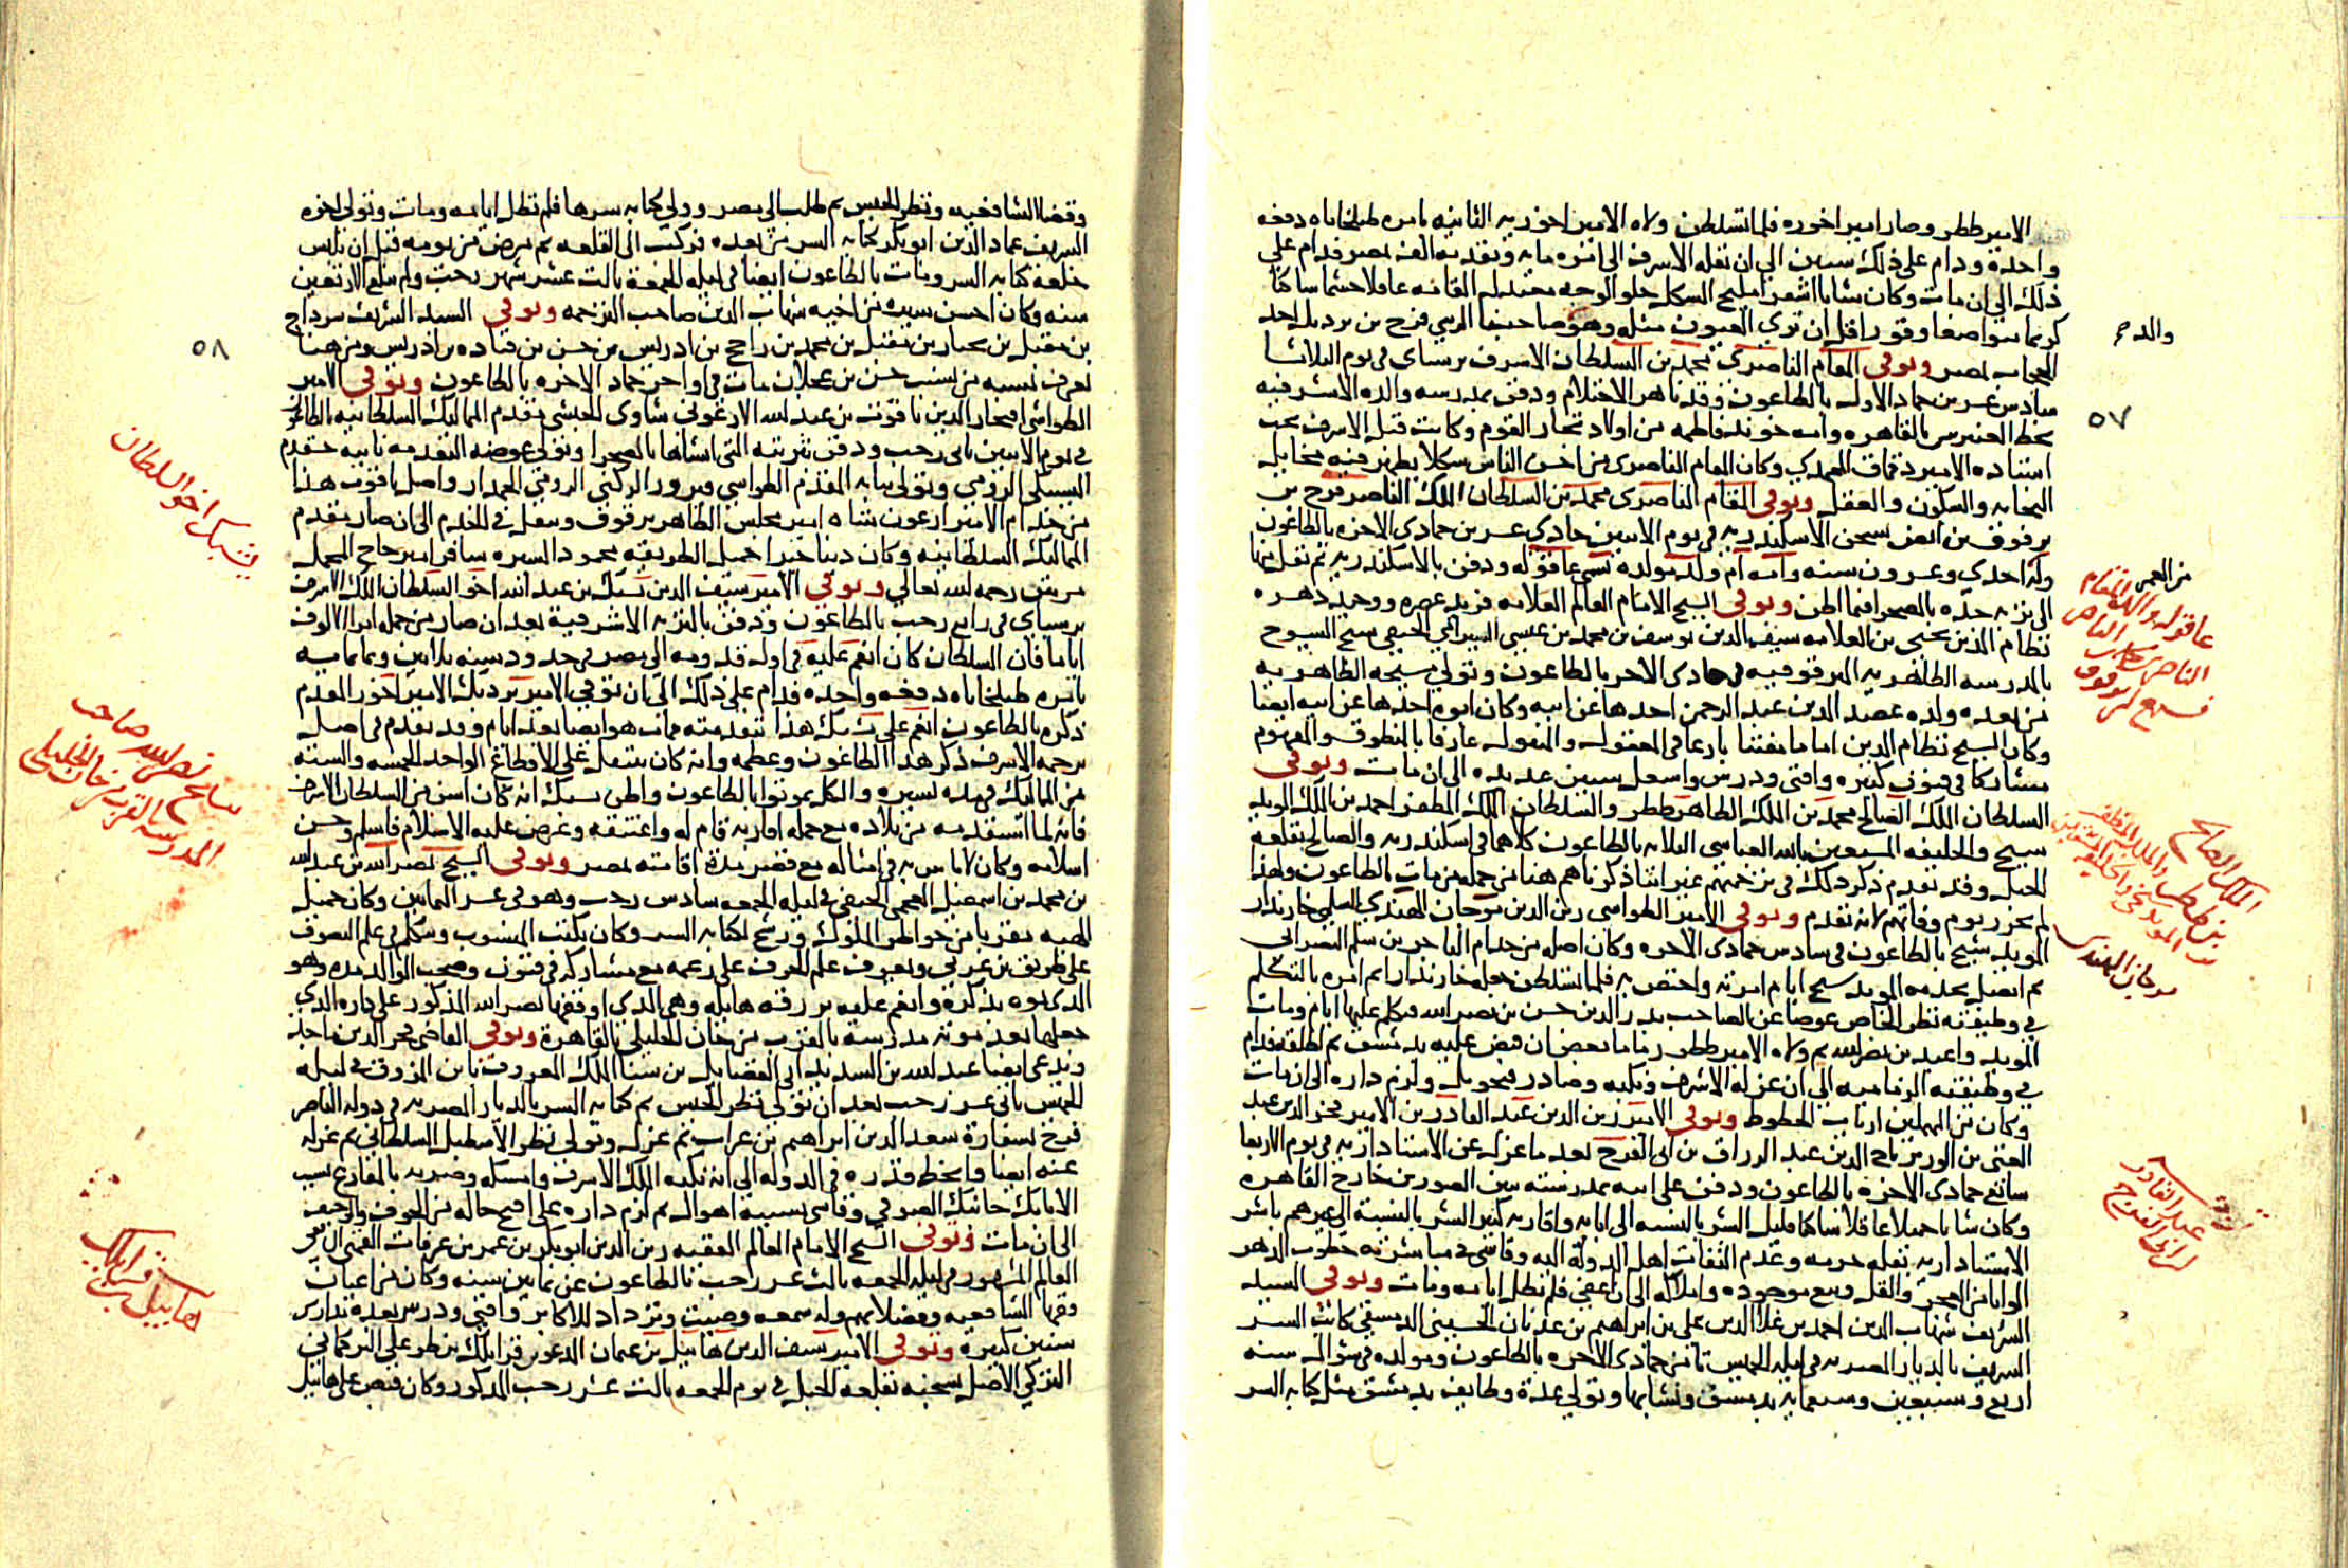 الامير ططر وصار امير اخوره فلما تسلطن ولاه الامير اخورية الثانيه بامره طبلخاناه دفعه
واحدة ودام على ذلك سنين الى ان نقله الاشرف الى امره مايه وتقدمه الف بمصر فدام على
ذلك الى ان مات وكان شابا اشقر مليح الشكل حلو الوجه معتدل القامه عاقلا حشما ساكنا
كريما متواضعا وقورا قل ان ترى العيون مثله وهو صاحبنا الزيني فرج بن برديك احد
والد
الحجاب بمصر وتوفى المقام الناصرى محمد بن السلطان الاشرف برسباى فى يوم الثلاثا
سادس عشر من جماد الاول بالطاعون وقد ناهز الاحتلام ودفن بمدرسه والده الاشرفيه
٥٧
بخط العنبرين بالقاهره وامه خوند فاطمه من اولاد تجار القوم وكانت قبل الاشرف تحت
استاده الامير دقماق المحمدى وكان المقام الناصرى من احسن الناس شكلا يظهر فيه مخايل
النجابه والسكون والعقل وتوفى المقام الناصرى محمد بن السلطان الملك الناصر فرج بن
برقوق بن انص بسجن الاسكندريه فى يوم الاثنين حادى عشرين جمادى الاخره بالطاعون
وله احدى وعشرون سنه وامه ام ولد مولده تسمى عاقوله ودفن بالاسكندريه ثم نقل منها
الى تربه جده بالصحرا فيما اظن وتوفى الشيخ الامام العالم العلامه فريد عصره ووحيد دهره
نظام الدين يحيى بن العلامه سيف الدين يوسف بن محمد بن عيسى السيرامي الحنفي شيخ الشيوخ
بالمدرسه الظاهريه البرقوقيه فى جمادى الاخر بالطاعون وتولى مشيخه الظاهريه
من بعده ولده عضد الدين عبد الرحمن احدها عن ابيه وكان ابوه احدها عن ابيه ايضا
وكان الشيخ نظام الدين اماما مفتنا بارعا فى المعقول والمنقول عارفا بالمنطوق والمفهوم
مشاركا فى فنون كثيره وافتى ودرس واشغل سنين عديده الى ان مات وتوفى
السلطان الملك الصالح محمد بن الملك الظاهر ططر والسلطان الملك المظفر احمد بن الملك المويد
شيخ والخليفه المستعين بالله العباسى الثلاثه بالطاعون كلاهما فى اسكندريه والصالح بقلعه
الجبل وقد تقدم ذكر ذلك فى ترجمتهم غير اننا ذكرناهم هنا من جمله من مات بالطاعون ولهذا
لم نحرر يوم وفاتهم لانه تقدم وتوفى الامير الطواشى زين الدين مرجان الهندى المسلمى خازندار
المويد شيخ بالطاعون فى سادس جمادى الاخره وكان اصله من خدام التاجر بن مسلم المصرى
ثم اتصل بخدمه المويد شيخ ايام امرته واختص به فلما تسلطن جعله خازندارا ثم امره بالتكلم
فى وظيفته نظر الخاص عوضا عن الصاحب بدر الدين حسن بن نصر الله فتكلم عليها ايام ومات
المويد واعيد بن نصر الله ثم ولاه الامير ططر زماما بعد ان قبض عليه بدمشق ثم اطلقه فدام
فى وظيفته الزماميه الى ان عزله الاشرف ونكبه وصادر ولزم داره الى ان مات
وكان من المهملين ارباب الحظوظ وتوفى الامير زين الدين عبد القادر بن الامير فخر الدين عبد
الغنى بن الوزير تاج الدين عبد الرزاق بن ابى الفرج بعد ما عزله عن الاستاداريه فى يوم الاربعا
سابع جمادى الاخره بالطاعون ودفن على ابيه بمدرسته بين السورين خارج القاهره
وكان شابا جميلا عاقلا ساكنا قليل الشر بالنسبه الى ابايه واقاربه كثير الشر بالنسبة الى غيرهم باشر
الاستاداريه بقله حرمه وعدم التفات اهل الدوله اليه وقاسى فى مباشرته خطوب الدهر
الوانا من العجز والقل وبيع موجوده واملاكه الى ان اعفى فلم تطل ايامه ومات وتوفى السيد
الشريف شهاب الدين احمد بن علا الدين على بن ابراهيم بن عدنان الحسينى الدمشقى كاتب السر
الشريف بالديار المصريه فى ليله الخميس ثامن جمادى الاخره بالطاعون ومولده فى شوال سنه
اربع وسبعين وسبعمايه بدمشق ونشا بها وتولى عدة وظايف بدمشق مثل كتابه السر
من العجمى
عاقوله والده المقام
الناصر
برقوق
الملك الصالح
بن ططر والملك المظفر
المويد شيخ والخليفه المستعين
مرجان الهندى
عبد القادر
بن ابى الفرج
وقضا الشافعيه ونظر الجيش ثم طلب الى مصر وولى كتابه سرها فلم تطل ايامه ومات وتولى اخوه
الشريف عماد الدين ابو بكر كتابه السر من بعده فركب الى القلعه ثم مرض من يومه قبل ان يلبس
خلعه كتابه السر ومات بالطاعون ايضا فى ليله الجمعة ثالث عشر شهر رجب ولم يبلغ الاربعين
سنه وكان احسن سيره من اخيه شهاب الدين صاحب الترجمه وتوفى السيد الشريف سرداح
بن مقبل بن نخبار بن مقبل بن محمد بن راجح بن ادريس بن حسن بن قتاده بن ادريس ومن هنا
٥٨
يعرف نسبه من نسب حسن بن عجلان مات فى اواخر جماد الاخره بالطاعون وتوفى الامير
الطواشى افتخار الدين ياقوت بن عبد الله الارغونى شاوى الحبشى مقدم المماليك السلطانيه بالطاعون
فى يوم الاثنين ثانى رجب ودفن بتربته التى انشاها بالصحرا وتولى عوضه التقدمه نايبه خشقدم
اليشبكى الرومى وتولى نيابه المقدم الطواشى فيروز الركنى الرومى الجمدار واصل ياقوت هذا
من خدام الامير ارغون شاه امير مجلس الظاهر برقوق وتنقل فى الخدم الى ان صار مقدم
المماليك السلطانيه وكان دينا خيرا جميل الطريقه محمود السيره سافر امير حاج المحمل
مرتين رحمه الله تعالى وتوفى الامير سيف الدين يشبك بن عبد الله اخو السلطان الملك الاشرف
برسباى فى رابع رجب بالطاعون ودفن بالتربه الاشرفية بعد ان صار من جمله امرا الالوف
اياما فان السلطان كان انعم عليه فى اول قدومه الى مصر فى حدود سنه ثلاثين وثمانمايه
بامره طبلخاناه دفعه واحده فدام على ذلك الى ان توفى الامير بردبك الامير اخور المقدم
ذكره بالطاعون انعم على يشبك هذا بتقدمته فمات هو ايضا بعد ايام وقد تقدم فى اصل
ترجمه الاشرف ذكر هذا الطاعون وعظمه وانه كان ينتقل على الاقطاع الواحد الخمسه والسته
من المماليك فى مده يسيره والكل يموتوا بالطاعون واظن يشبك انه كان اسن من السلطان الاشرف
فانه لما استقدمه من بلاده مع جمله اقاربه قام له واعتنقه وعرض عليه الاسلام فاسلم وحسن
اسلامه وكان لا باس به فى امثاله مع قصر مدة اقامته بمصر وتوفى الشيخ نصر الله بن عبد الله
بن محمد بن اسمعيل العجمى الحنفى فى ليله الجمعه سادس رجب وهو فى عشر الثمانين وكان جميل
الهيه مقربا من خواطر الملوك ورشح لكتابه السر وكان يكتب المنسوب ويتكلم فى علم التصوف
على طريق بن عربى ويعرف علم الحرف على زعمه مع مشاركه فى فنون وصحب الوالد مده وهو
الذى نوه بذكره وانعم عليه برزقه هايله وهى الذى اوقفها نصر الله المذكور على داره الذى
جعلها بعد موته مدرسة بالقرب من خان الخليلى بالقاهرة وتوفى القاضى فخر الدين ماجد
ويدعى ايضا عبد الله بن السديد ابى الفضايل بن سنا الملك المعروف بابن المزوق فى ليله
الخميس ثانى عشر رجب بعد ان تولى نظر الجيش ثم كتابه السر بالديار المصريه فى دوله الناصر
فرج بسفارة سعد الدين ابراهيم بن غراب ثم عزل وتولى نظر الاسطبل السلطانى ثم عزل
عنه ايضا وانحط قدره فى الدوله الى ان نكبه الملك الاشرف وامسكه وضربه بالمقارع بسبب
الاتابك جانبك الصوفى وقاسى بسببه اهوال ثم لزم داره على اقبح حاله من الخوف والرجيف
الى ان مات وتوفى الشيخ الامام العالم الفقيه زين الدين ابو بكر بن عمر بن عرفات القمنى الشافعى
العالم المشهور فى ليله الجمعه ثالث عشر رجب بالطاعون عن ثمانين سنه وكان من اعيان
فقها الشافعيه وفضلايهم وله سمعه وصيت وترداد للاكابر وافتى ودرس بعدة مدارس
سنين كثيره وتوفى الامير سيف الدين هابيل بن عثمان المدعو قرايلك بن طرعلى التركمانى
التركى الاصل بسجنه بقلعه الجبل فى يوم الجمعه ثالث عشر رجب المذكور وكان قبض على هابيل
يشبك اخو السلطان
شيخ نصر الله صاحب
المدرسه القرب من خان الخليلى
هابيل بن قرايلك